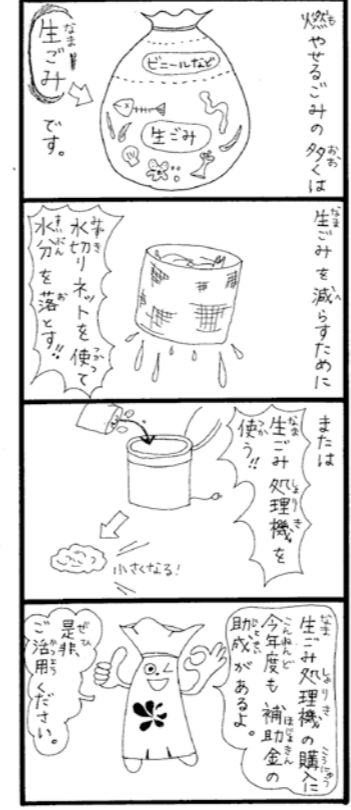 燃やせるごみの多くは
ビニールなど
生ごみ
生ごみ
です。
生ごみを減らすために
水切りネットを使て
水分を落とす!!
または
生ごみ処理機を
使う!!
小さくなる!
生ごみ処理機の購入に
今年度も補助金の
助成があるよ。
是非、
ご活用ください。